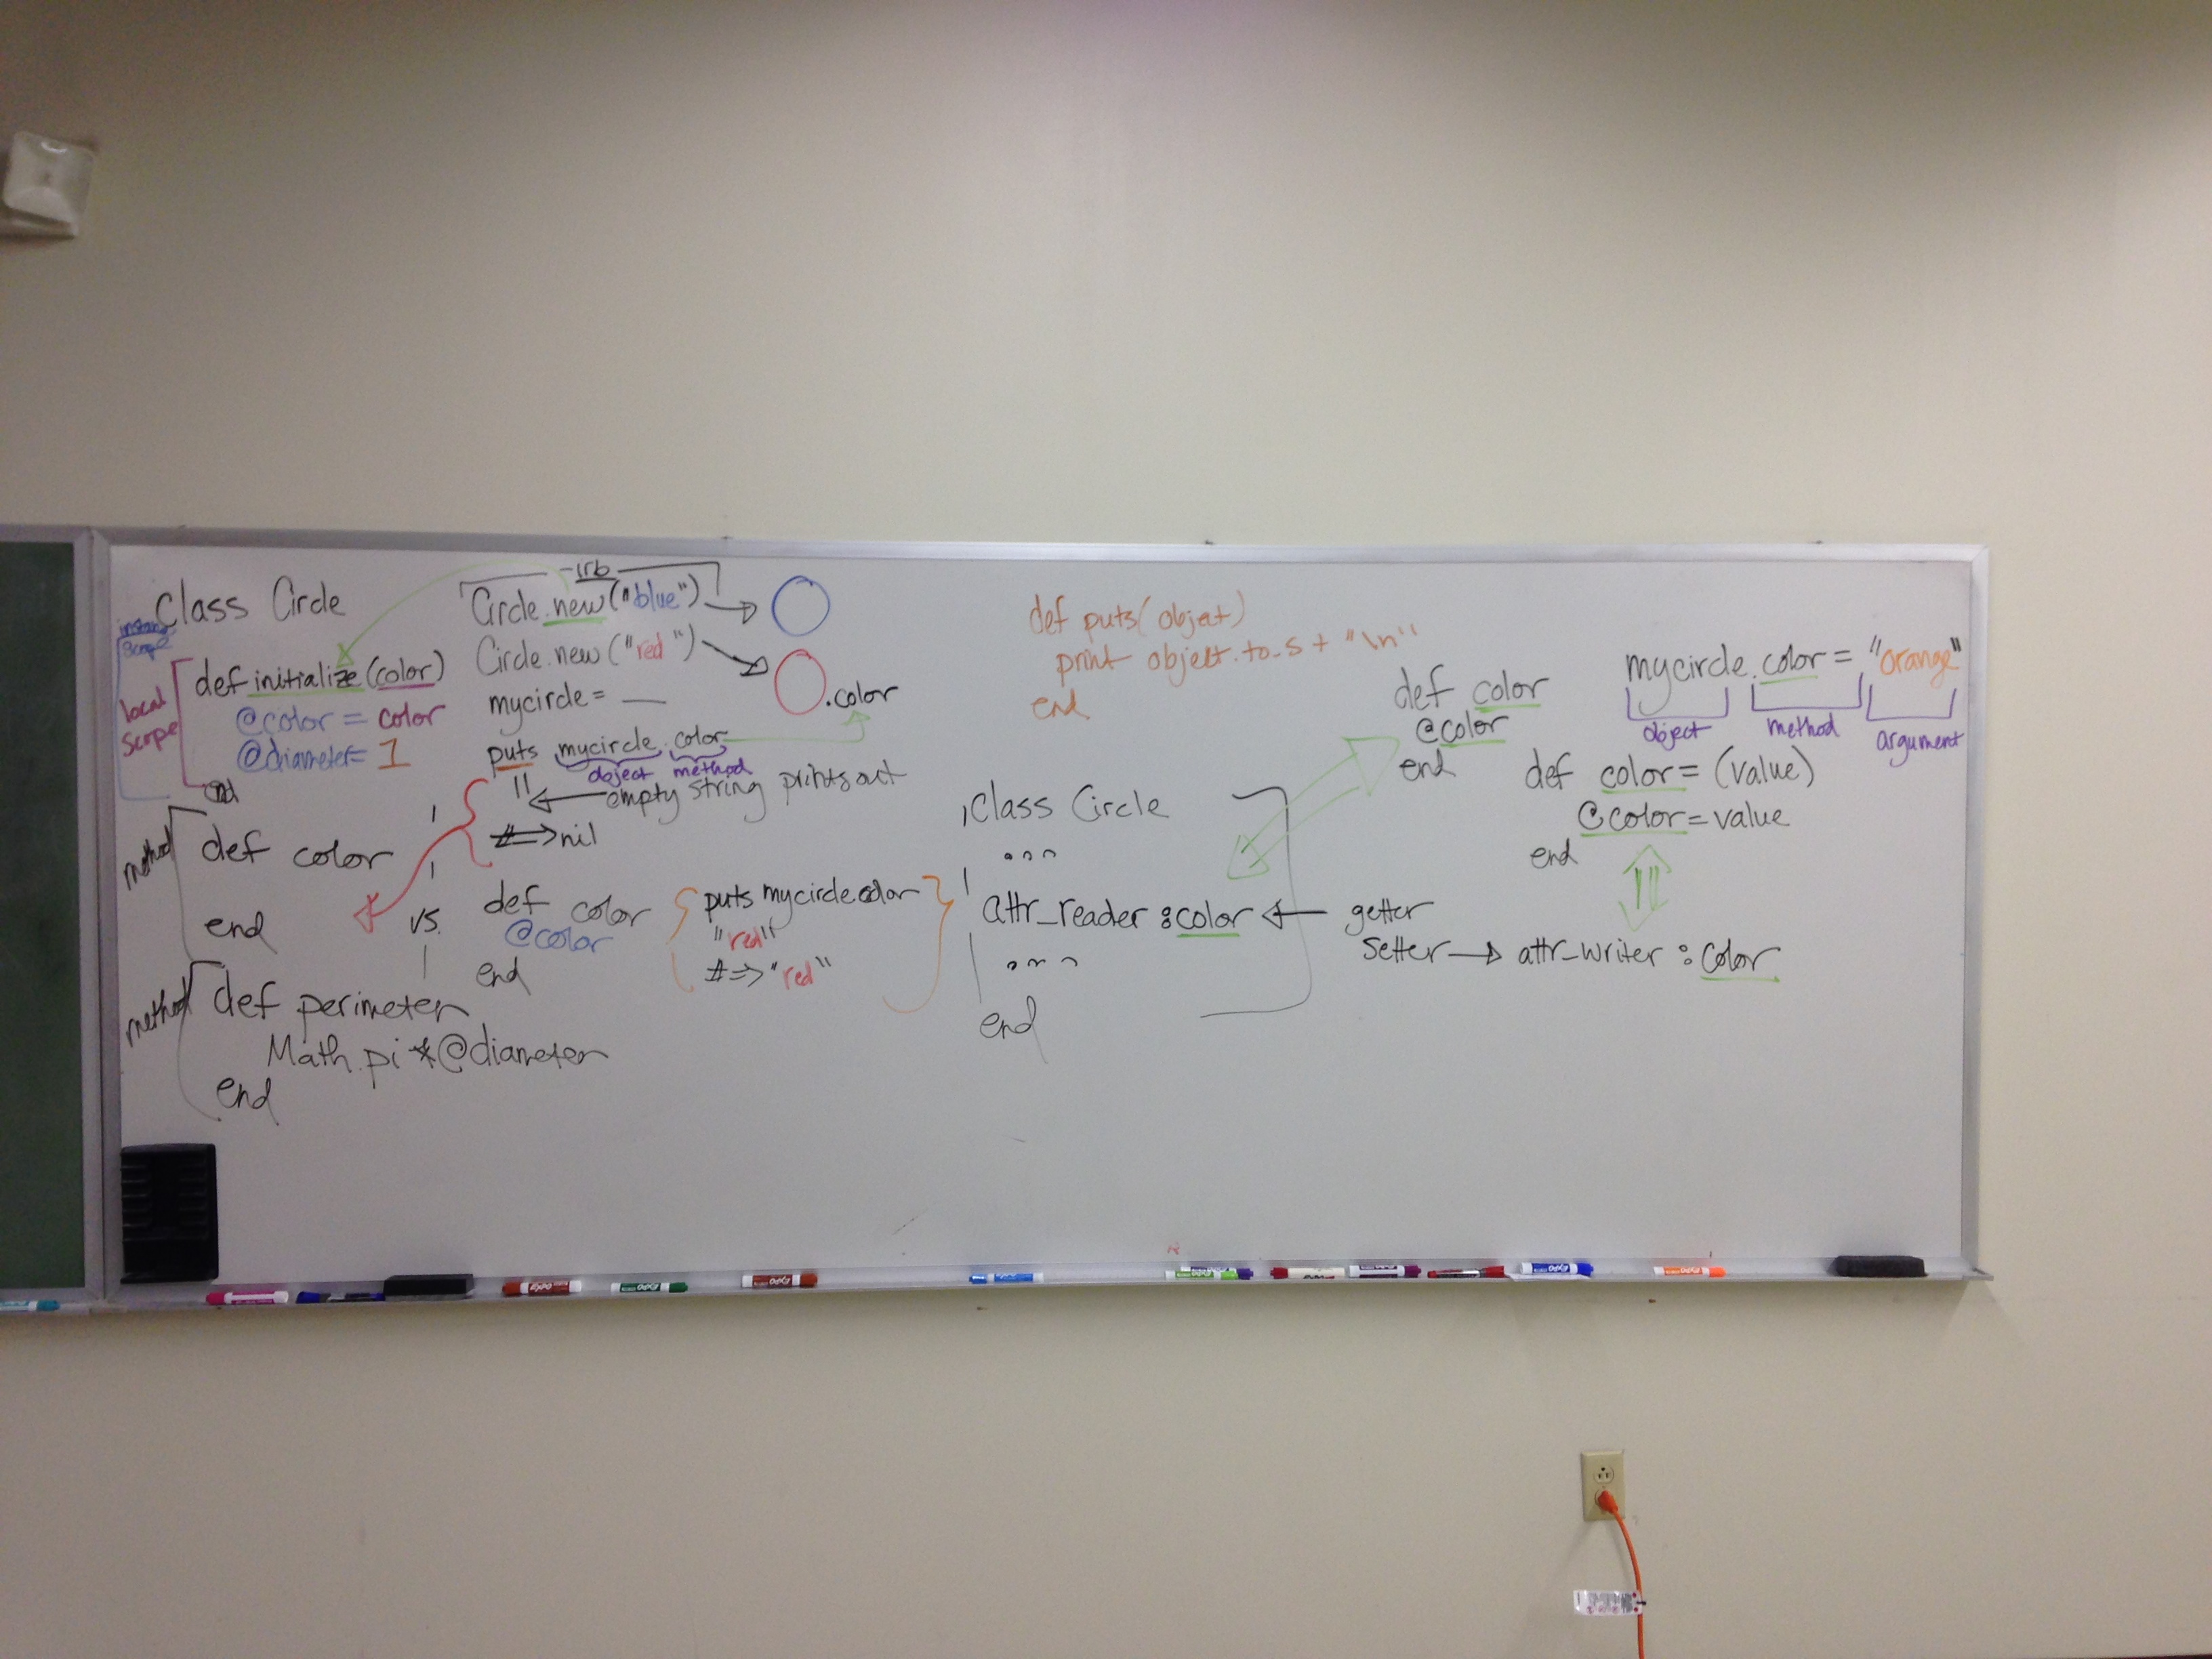 Class Circle
instance
scope
local
scope
def initialize (color)
@color = color
@diameter = 1
end
method
def color
end
method
def perimeter
Math.pi * @diameter
end
irb
Circle.new("blue")
Circle.new("red")
mycircle = __
.color
puts mycircle.color
object method
"
empty string prints out
#=> nil
vs.
def color
@color
end
puts mycircle.color
"red"
#=> "red"
def puts(object)
print object.to_s + "\n"
end
Class Circle
...
attr_reader :color
...
end
getter
setter → attr_writer :color
def color
@color
end
mycircle.color = "orange"
object method argument
def color= (value)
@color = value
end